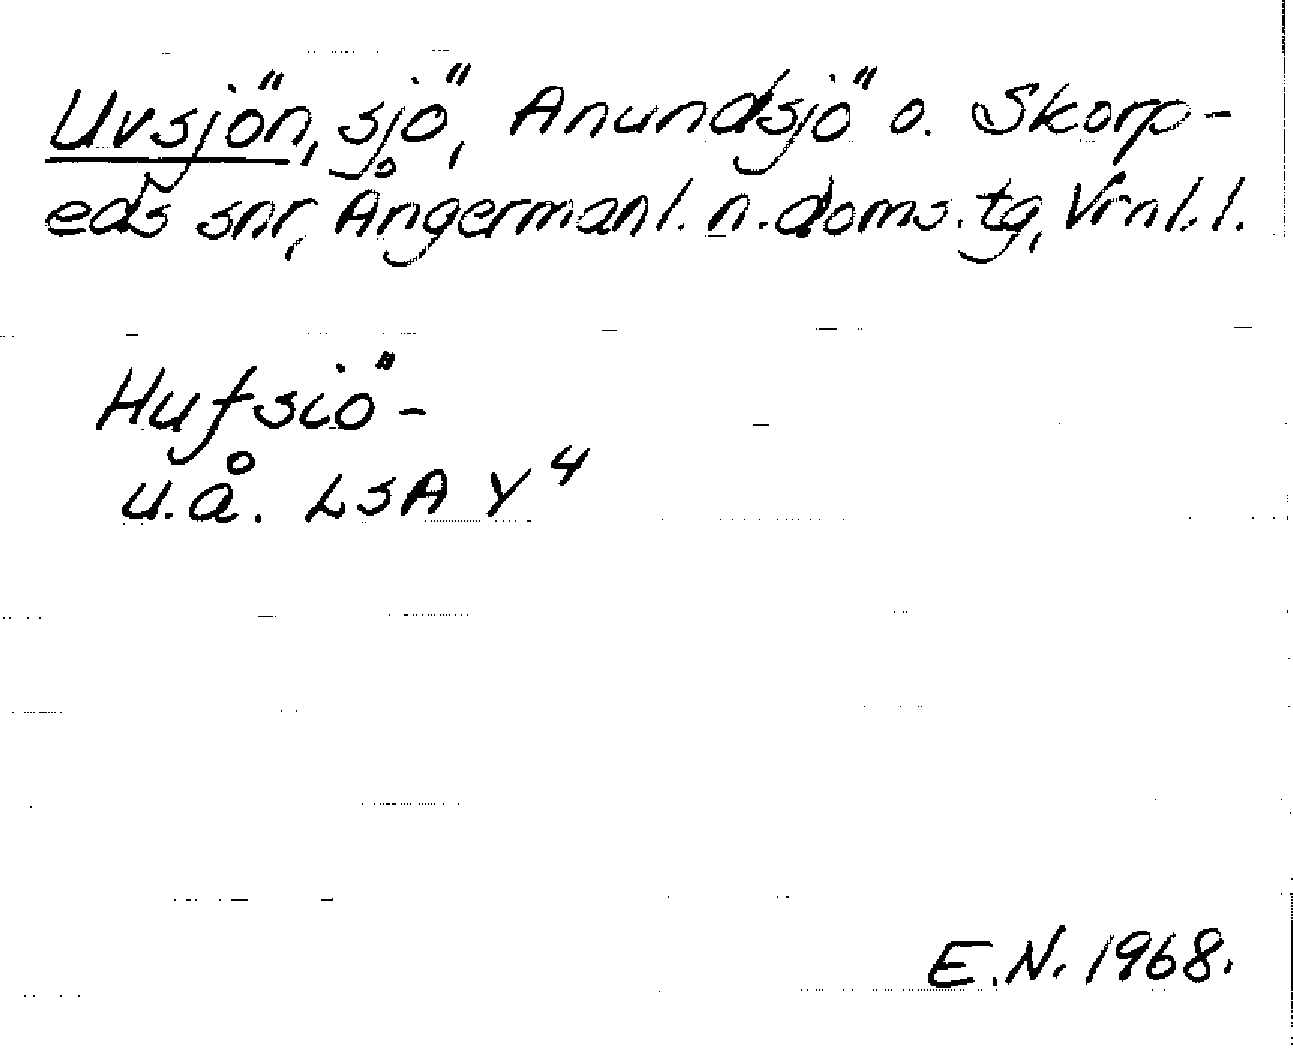 Uvsjön, sjö, Anundsjö o. Skorp-
eds snr, Ångermanl. n. doms. tg, Vrnl. l.
Hufsiö -
u.å. LSA Y 4
E.N. 1968.